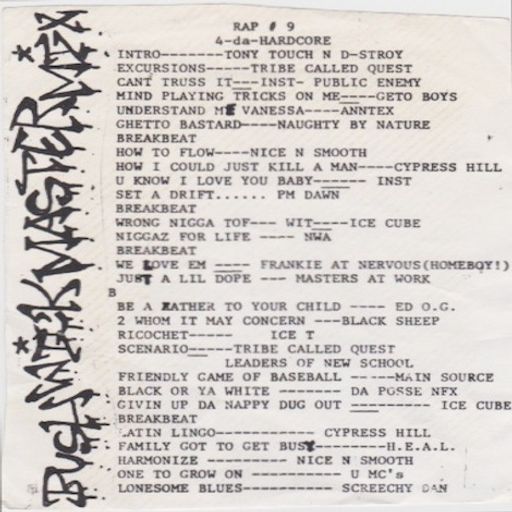 RAP # 9
4-da-HARDCORE
INTRO--------TONY TOUCH N D-STROY
EXCURSIONS-----TRIBE CALLED QUEST
CANT TRUSS IT___-INST- PUBLIC ENEMY
MIND PLAYING TRICKS ON ME-___--GETO BOYS
UNDERSTAND ME VANESSA----ANNTEX
GHETTO BASTARD----NAUGHTY BY NATURE
BREAKBEAT
HOW TO FLOW----NICE N SMOOTH
HOW I COULD JUST KILL A MAN----CYPRESS HILL
U KNOW I LOVE YOU BABY------ INST
SET A DRIFT...... PM DAWN
BREAKBEAT
WRONG NIGGA TOF--- WIT___---ICE CUBE
NIGGAZ FOR LIFE ---- NWA
BREAKBEAT
WE LOVE EM ____ FRANKIE AT NERVOUS(HOMEBOY!)
JUST A LIL DOPE --- MASTERS AT WORK
B
BE A FATHER TO YOUR CHILD ---- ED O.G.
2 WHOM IT MAY CONCERN ---BLACK SHEEP
RICOCHET------ ICE T
SCENARIO-___---TRIBE CALLED QUEST
LEADERS OF NEW SCHOOL
FRIENDLY GAME OF BASEBALL ------MAIN SOURCE
BLACK OR YA WHITE ------- DA POSSE NFX
GIVIN UP DA NAPPY DUG OUT ---------- ICE CUBE
BREAKBEAT
LATIN LINGO------------ CYPRESS HILL
FAMILY GOT TO GET BUSY---------H.E.A.L.
HARMONIZE ----------- NICE N SMOOTH
ONE TO GROW ON ----------- U MC's
LONESOME BLUES----------- SCREECHY DAN